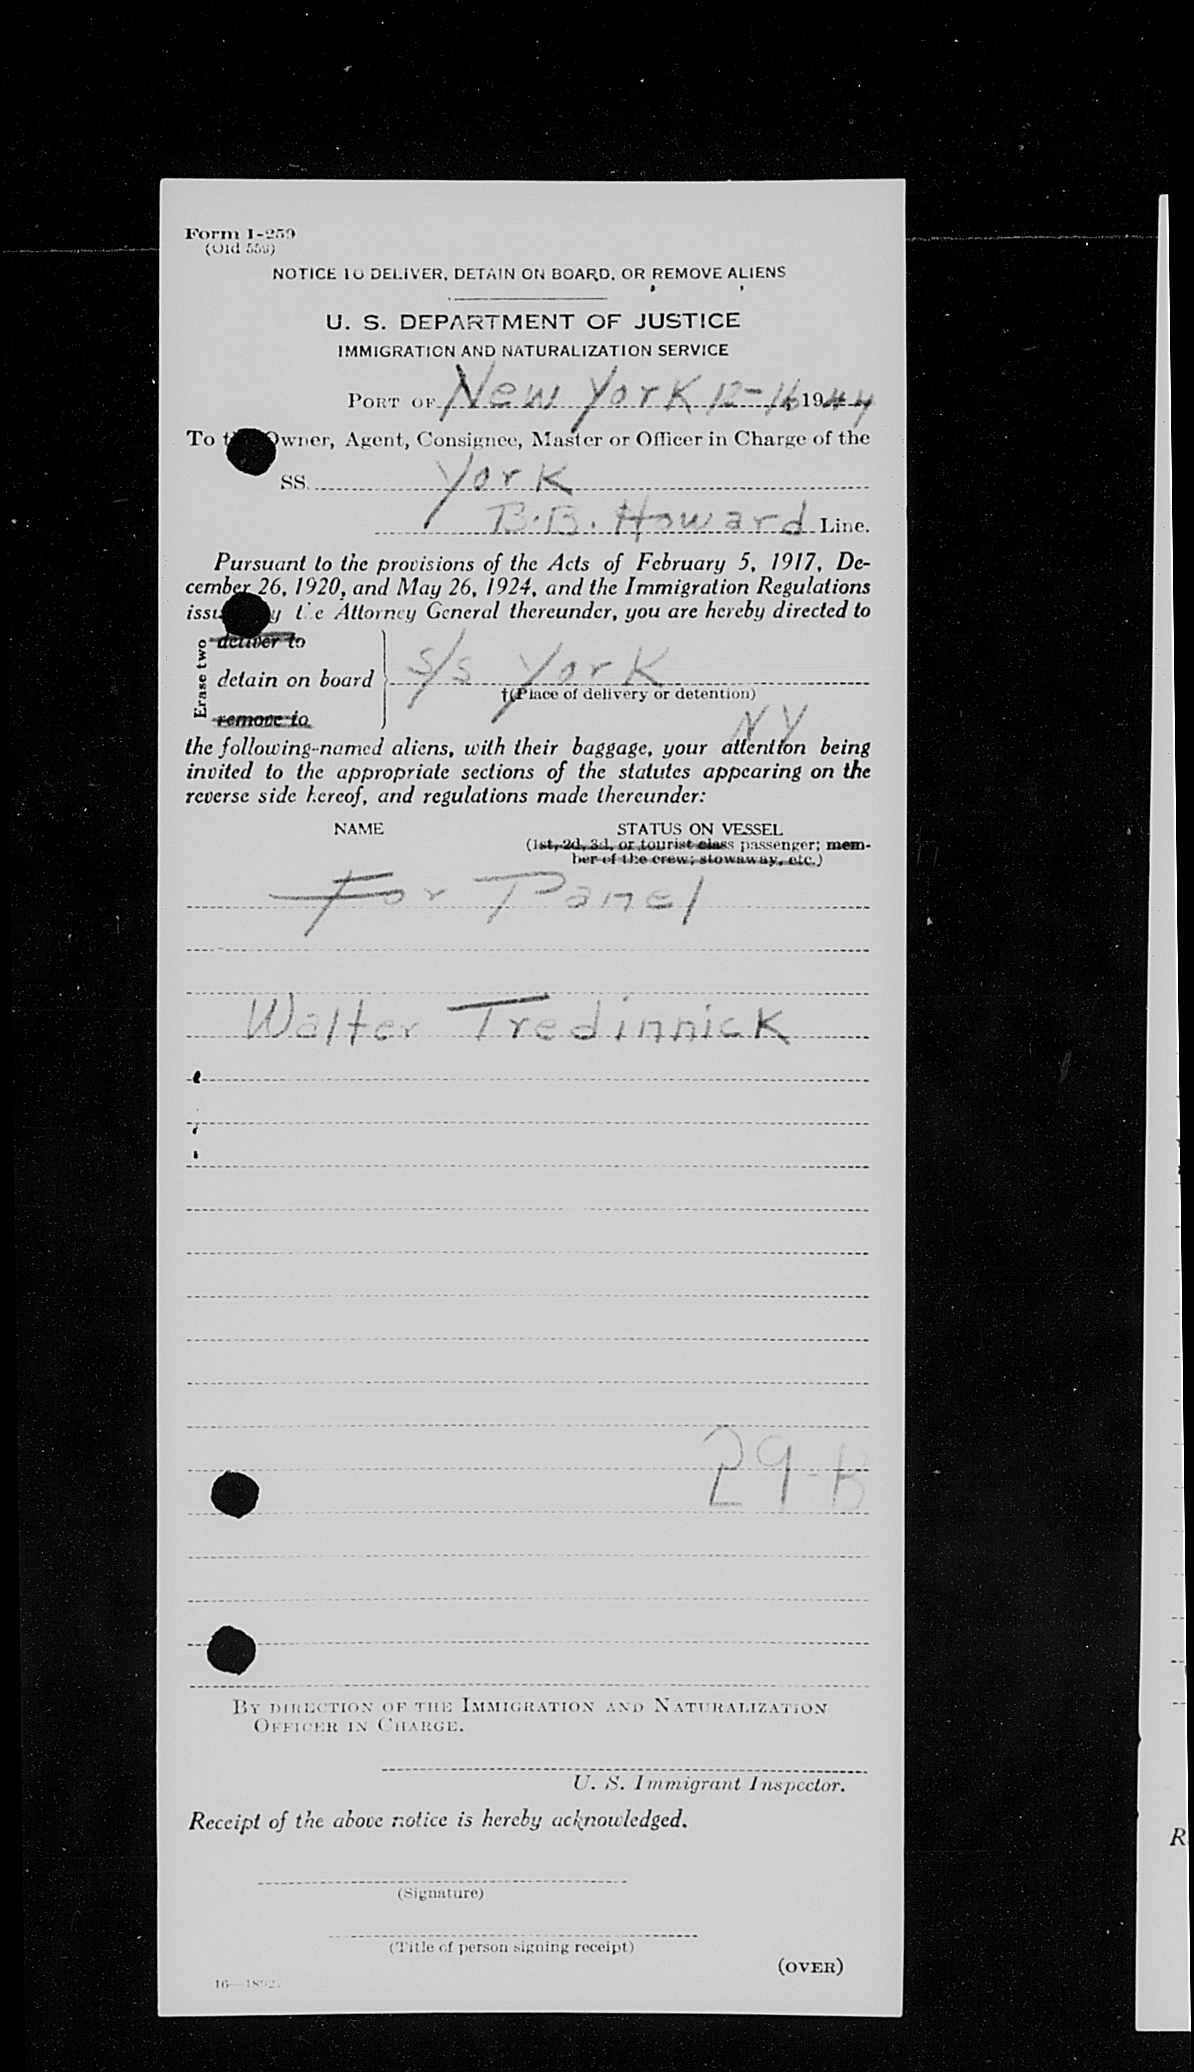 Form I-259
(Old 559)
NOTICE TO DELIVER, DETAIN ON BOARD, OR REMOVE ALIENS
U. S. DEPARTMENT OF JUSTICE
IMMIGRATION AND NATURALIZATION SERVICE
PORT OF New York 12-16, 1944
To the Owner, Agent, Consignee, Master or Officer in Charge of the
SS. York
B.B. Howard Line.
Pursuant to the provisions of the Acts of February 5, 1917, De-
cember 26, 1920, and May 26, 1924, and the Immigration Regulations
issued by the Attorney General thereunder, you are hereby directed to
Erase two
deliver to
detain on board s/s York
remove to
†(Place of delivery or detention)
NY
the following-named aliens, with their baggage, your attention being
invited to the appropriate sections of the statutes appearing on the
reverse side hereof, and regulations made thereunder:
NAME STATUS ON VESSEL
(1st, 2d, 3d, or tourist class passenger; mem-
ber of the crew; stowaway, etc.)
For Panel
Walter Tredinnick
29-B
BY DIRECTION OF THE IMMIGRATION AND NATURALIZATION
OFFICER IN CHARGE.
U. S. Immigrant Inspector.
Receipt of the above notice is hereby acknowledged.
(Signature)
(Title of person signing receipt)
(OVER)
R